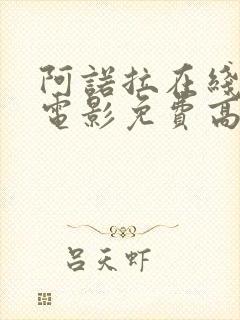 阿諾拉在綫
電影免費高
吕天虾